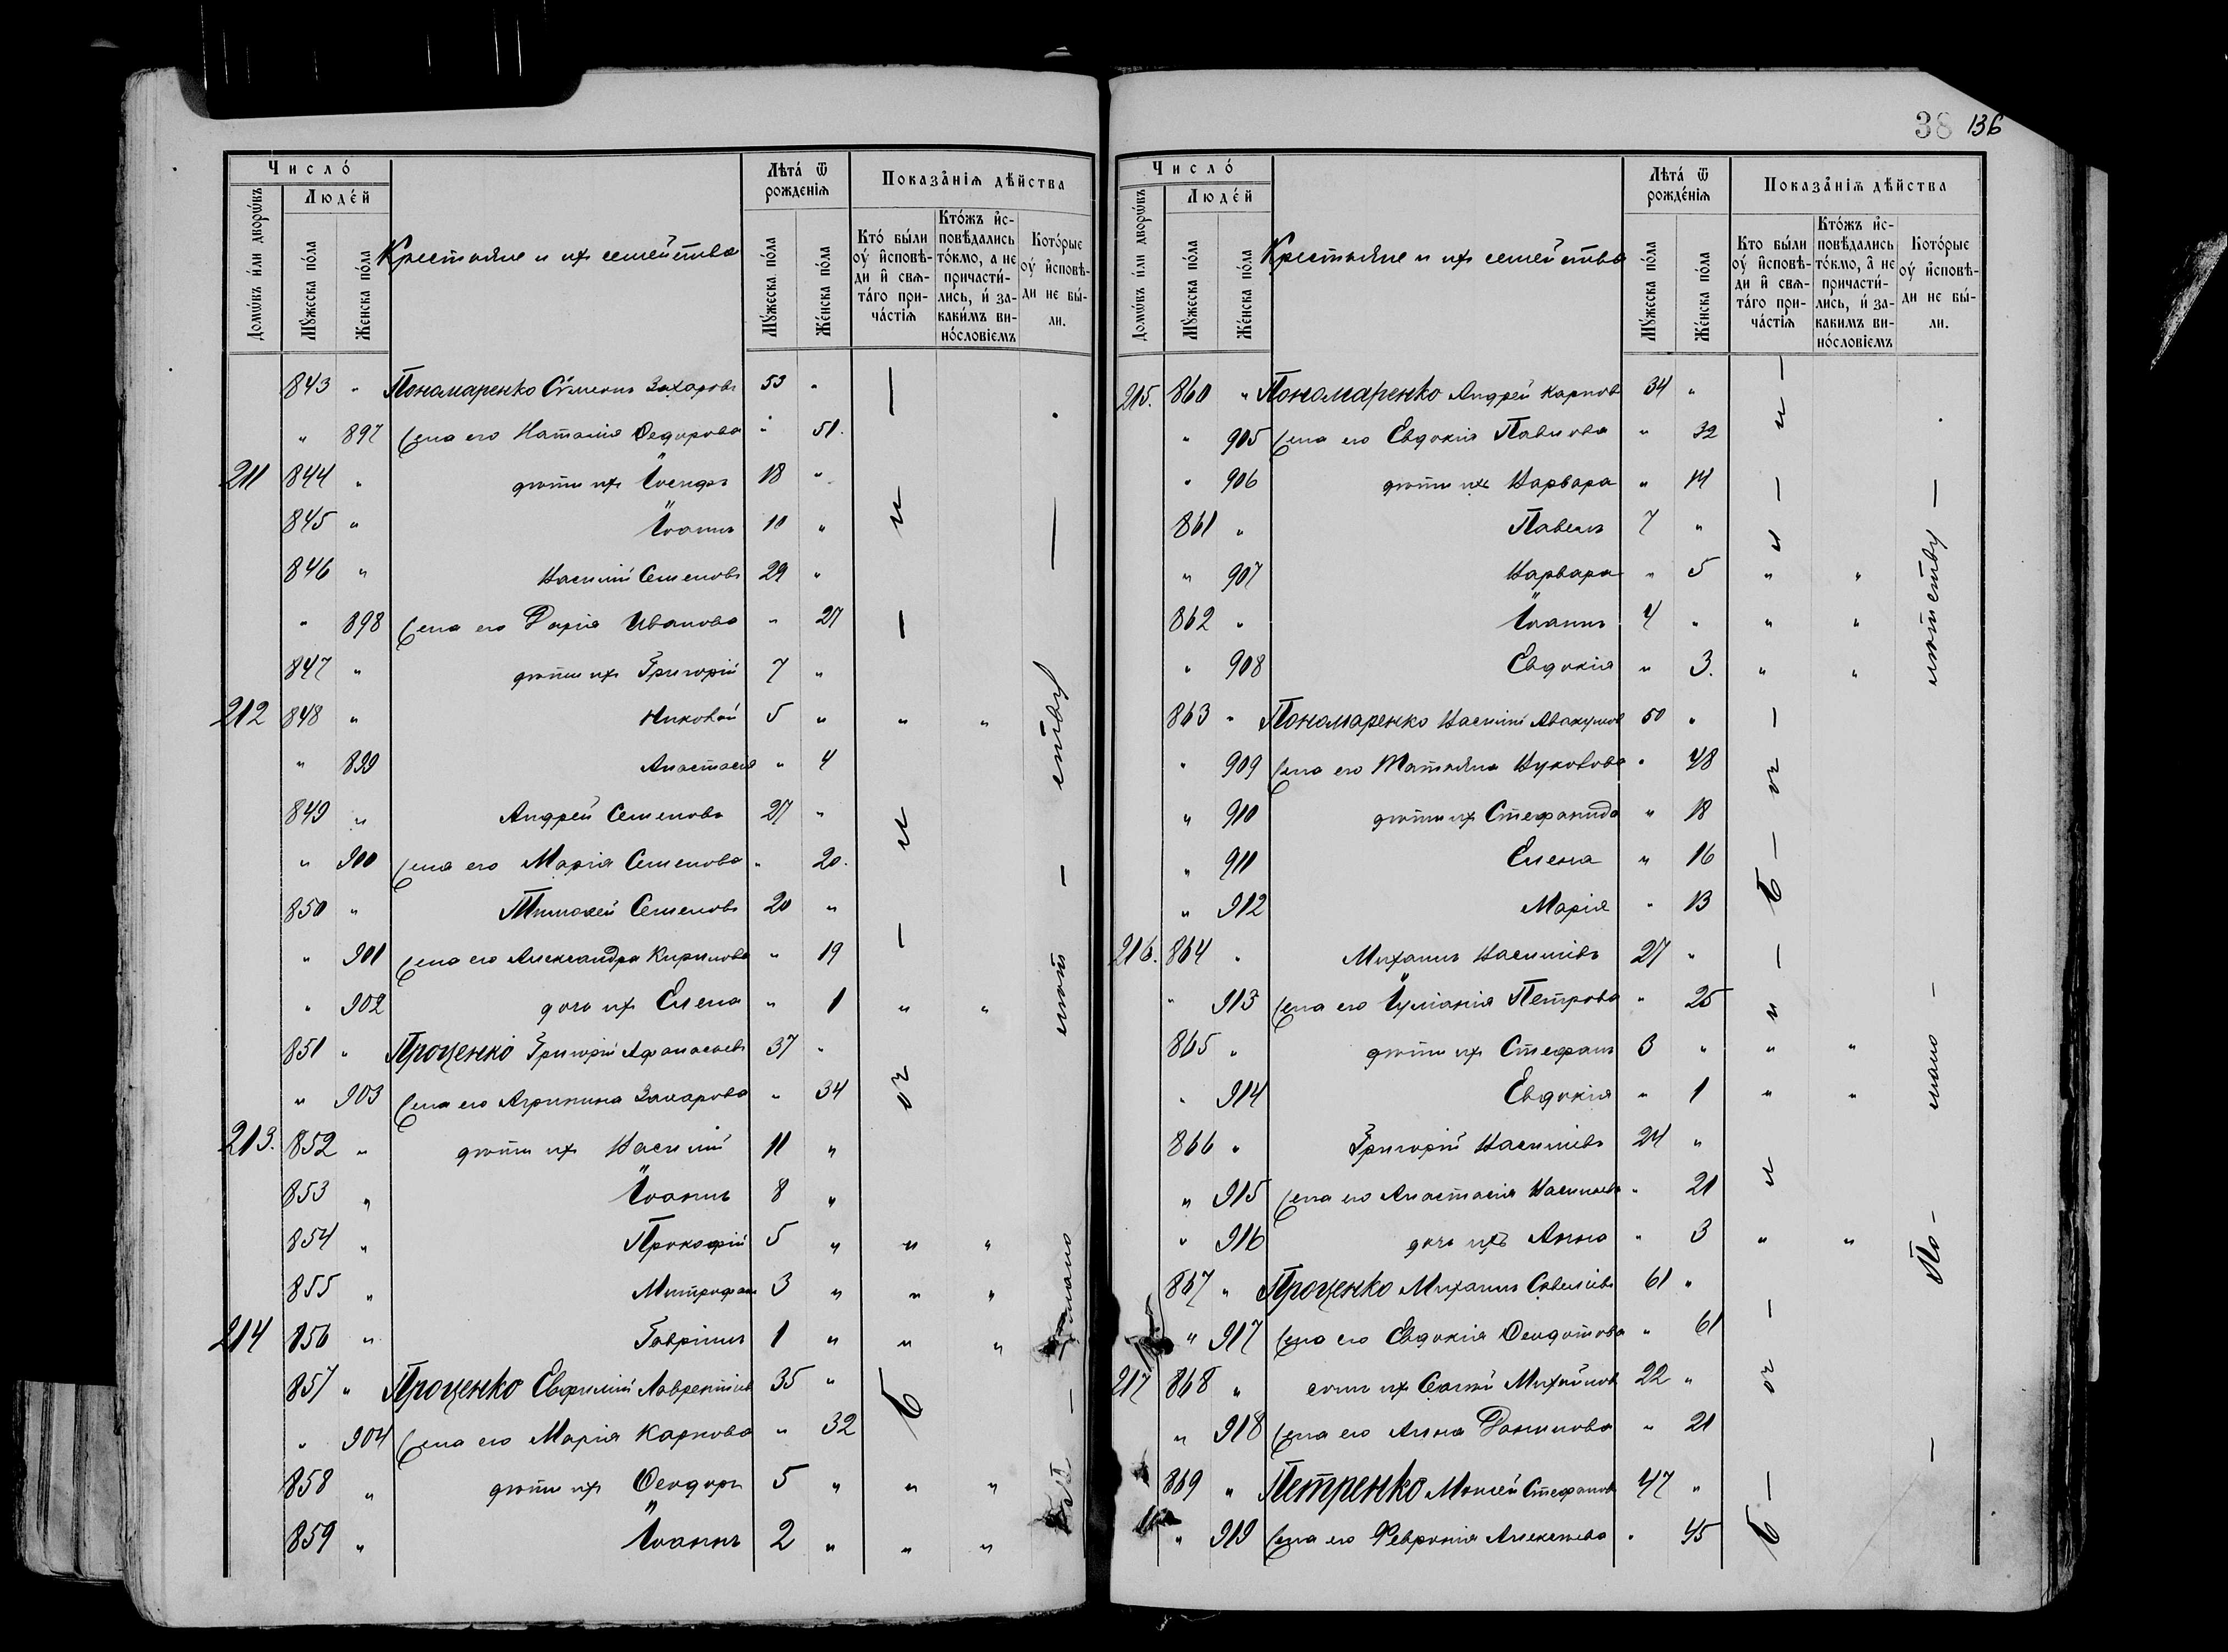 38 136
Число́
Люде́й
Домѡ́въ и҆́лѝ дворѡ́въ
Мꙋ́жеска по́ла
Же́нска по́ла
Крестьяне и ихъ семейства
Лѣта́ ѿ рожде́нїѧ
Мꙋ́жеска по́ла
Же́нска по́ла
Показа̑нїѧ дѣ́йства
Кто́ бы́ли оу҆ и҆сповѣ-
ди и҆ свѧ-
та́го при-
ча́стїѧ
Кто́жъ и҆с-
повѣ́дались
то́кмо, а҆ не
причасти́-
лись, и҆ за-
каки́мъ ви-
носло́вїемъ
Кото́рые
оу҆ и҆сповѣ́-
ди не бы́-
ли.
843 " Пономаренко Сѵмеонъ Захаровъ 53 "
" 897 Жена его Наталія Ѳедорова " 51.
211 844 " дѣти ихъ Іосифъ 18 "
845 " Іоаннъ 10 "
846 " Василій Семеновъ 29 "
" 898 Жена его Дарія Иванова " 27
847 " дѣти ихъ Григорій 7 "
212 848 " 5 " " "
" 899 Анастасія " 4
849 " Андрей Семеновъ 27 "
" 900 Жена его Марія Семенова " 20.
850 " Тимоѳей Семеновъ 20 "
" 901 Жена его Александра Кирилова " 19
" 902 дочь ихъ Елена " 1 " "
851 " Проценко Григорій Аѳанасьевъ 37 "
" 903 Жена его Агрипина Захарова " 34
213. 852 " дѣти ихъ Василій 11 "
853 " Іоаннъ 8 "
854 " Прокофій 5 " " "
855 " Митрофанъ 3 " " "
214 856 " Гавріилъ 1 " " "
857 " Проценко Евфимій Лаврентіевъ 35 "
" 904 Жена его Марія Карпова " 32
858 " дѣти ихъ Ѳеодоръ 5 " " "
859 " Іоаннъ 2 " " "
Число́
Люде́й
Домѡ́въ и҆́лѝ дворѡ́въ
Мꙋ́жеска по́ла
Же́нска по́ла
Крестьяне и ихъ семейства
Лѣта́ ѿ рожде́нїѧ
Мꙋ́жеска по́ла
Же́нска по́ла
Показа̑нїѧ дѣ́йства
Кто бы́ли
оу҆ и҆сповѣ-
ди и҆ свѧ-
та́го при-
ча́стїѧ
Кто́жъ и҆с-
повѣ́дались
то́кмо, а҆ не
причасти́-
лись, и҆ за-
какимъ ви-
но́словїемъ
Кото́рые
оу҆ и҆сповѣ́-
ди не бы́-
ли.
215. 860 " Пономаренко Андрей Карповъ 34 "
" 905 Жена его Евдокія Павлова " 32
" 906 дѣти ихъ Варвара " 14
861 " Павелъ 7 "
" 907 Варвара " 5 " "
862 " Іоаннъ 4 " " "
" 908 Евдокія " 3. " "
863 " Пономаренко Василій Авакумовъ 50 "
" 909 Жена его Татьяна " 48
" 910 дѣти ихъ Стефанида " 18
" 911 Елена " 16
" 912 Марія " 13
216. 864 " Михаилъ Василіевъ 27 "
" 913 Жена его Іуліанія Петрова " 25
865 " дѣти ихъ Стефанъ 3 " " "
" 914 Евдокія " 1 " "
866 " Григорій Василіевъ 24 "
" 915 Жена его Анастасія Васильева " 21
" 916 дочь ихъ Анна " 3 " "
867 " Проценко Михаилъ Савеліевъ 61 "
" 917 Жена его Евдокія Ѳеодотова " 61
217 868 " сынъ ихъ Михайловъ 22 "
" 918 Жена его Анна Данилова " 21
869 " Петренко Моисей Стефановъ 47 "
" 919 Жена его Февронія Алексѣева " 45